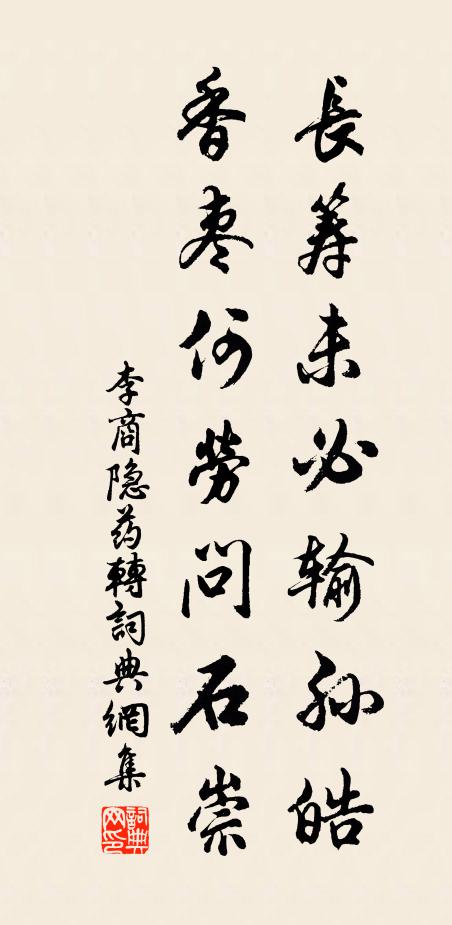 長筹未必输孙皓
香枣何勞問石崇
李商隐药轉詞典網集
詞典網印